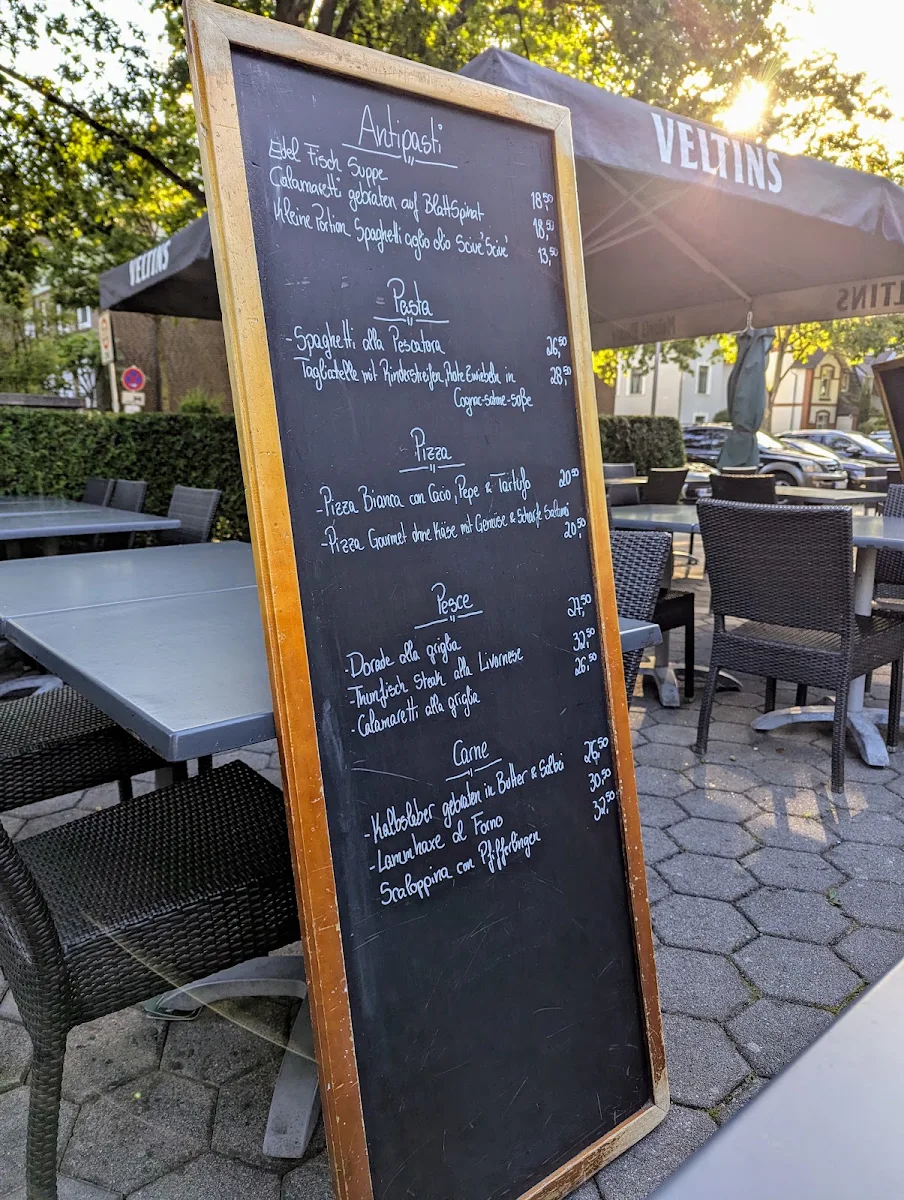 VELTINS
VELTINS
VELTINS
Antipasti
Edel Fisch Suppe 18,50
Calamaretti gebraten auf Blattspinat 18,50
Kleine Portion Spaghetti aglio olio Scive' Scive' 13,50
Pasta
-Spaghetti alla Pescatora 26,50
Tagliatelle mit Rinderstreifen, Rote Zwiebeln in 28,50
Cognac-sahne-soße
Pizza
-Pizza Bianca con Cacio, Pepe & Tartufo 20,50
-Pizza Gourmet ohne Käse mit Gemüse & Scharfe Salami 20,50
Pesce
-Dorade alla griglia 27,50
-Thunfisch Steak alla Livornese 32,50
-Calamaretti alla griglia 26,50
Carne
-Kalbsleber gebraten in Butter & Salbei 26,50
-Lammhaxe al Forno 30,50
Scaloppina con Pfifferlingen 32,50